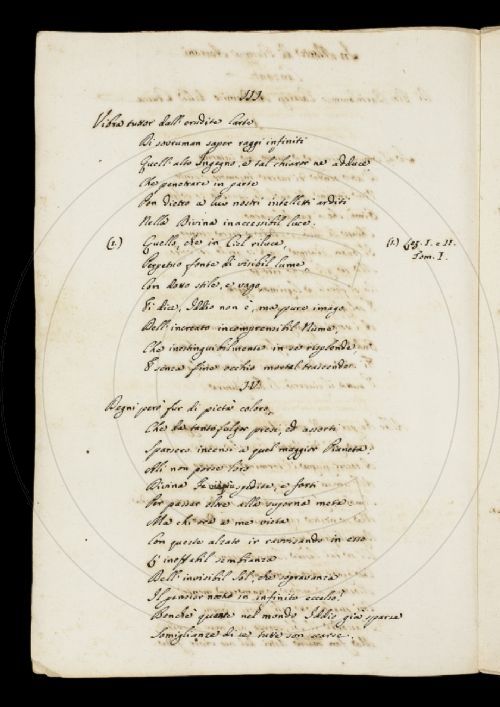 III.
Vibra tuttor dall' erudite Carte
Di sovruman saper raggi infiniti
Quell' alto Ingegno, e tal chiaror ne adduce,
Che penetrare in parte
Pon dietro a lui nostri intelletti arditi
Nella Divina inaccessibil luce.
(1.) Quello, che in Ciel riluce, (1.) Leg. I. e II.
Perpetuo fonte di visibil lume, Tom. I.
Con dotto stile, e vago,
Ei dice, Iddio non è, ma pure imago
Dell' increato incomprensibil Nume,
Che inestinguibilmente in se risplende,
E senza fine occhio mortal trascende.
IV.
Degni però fur di pietà coloro,
Che da tanto fulgor presi, ed assorti
Sparsero incensi a quel maggior Pianeta.
Alli non porse loro
Divina Fe spedite, e forti
Per passar oltre alla superna meta
Ma chi ora a me vieta
Con queste alzato ir ravvisando in esso
L' ineffabil sembianza
Dell' invisibil Sol, che sopravanza
Il pensier nostro in infinito eccesso?
Benchè quante nel mondo Iddio già sparse
Somiglianze di se tutte son scarse.